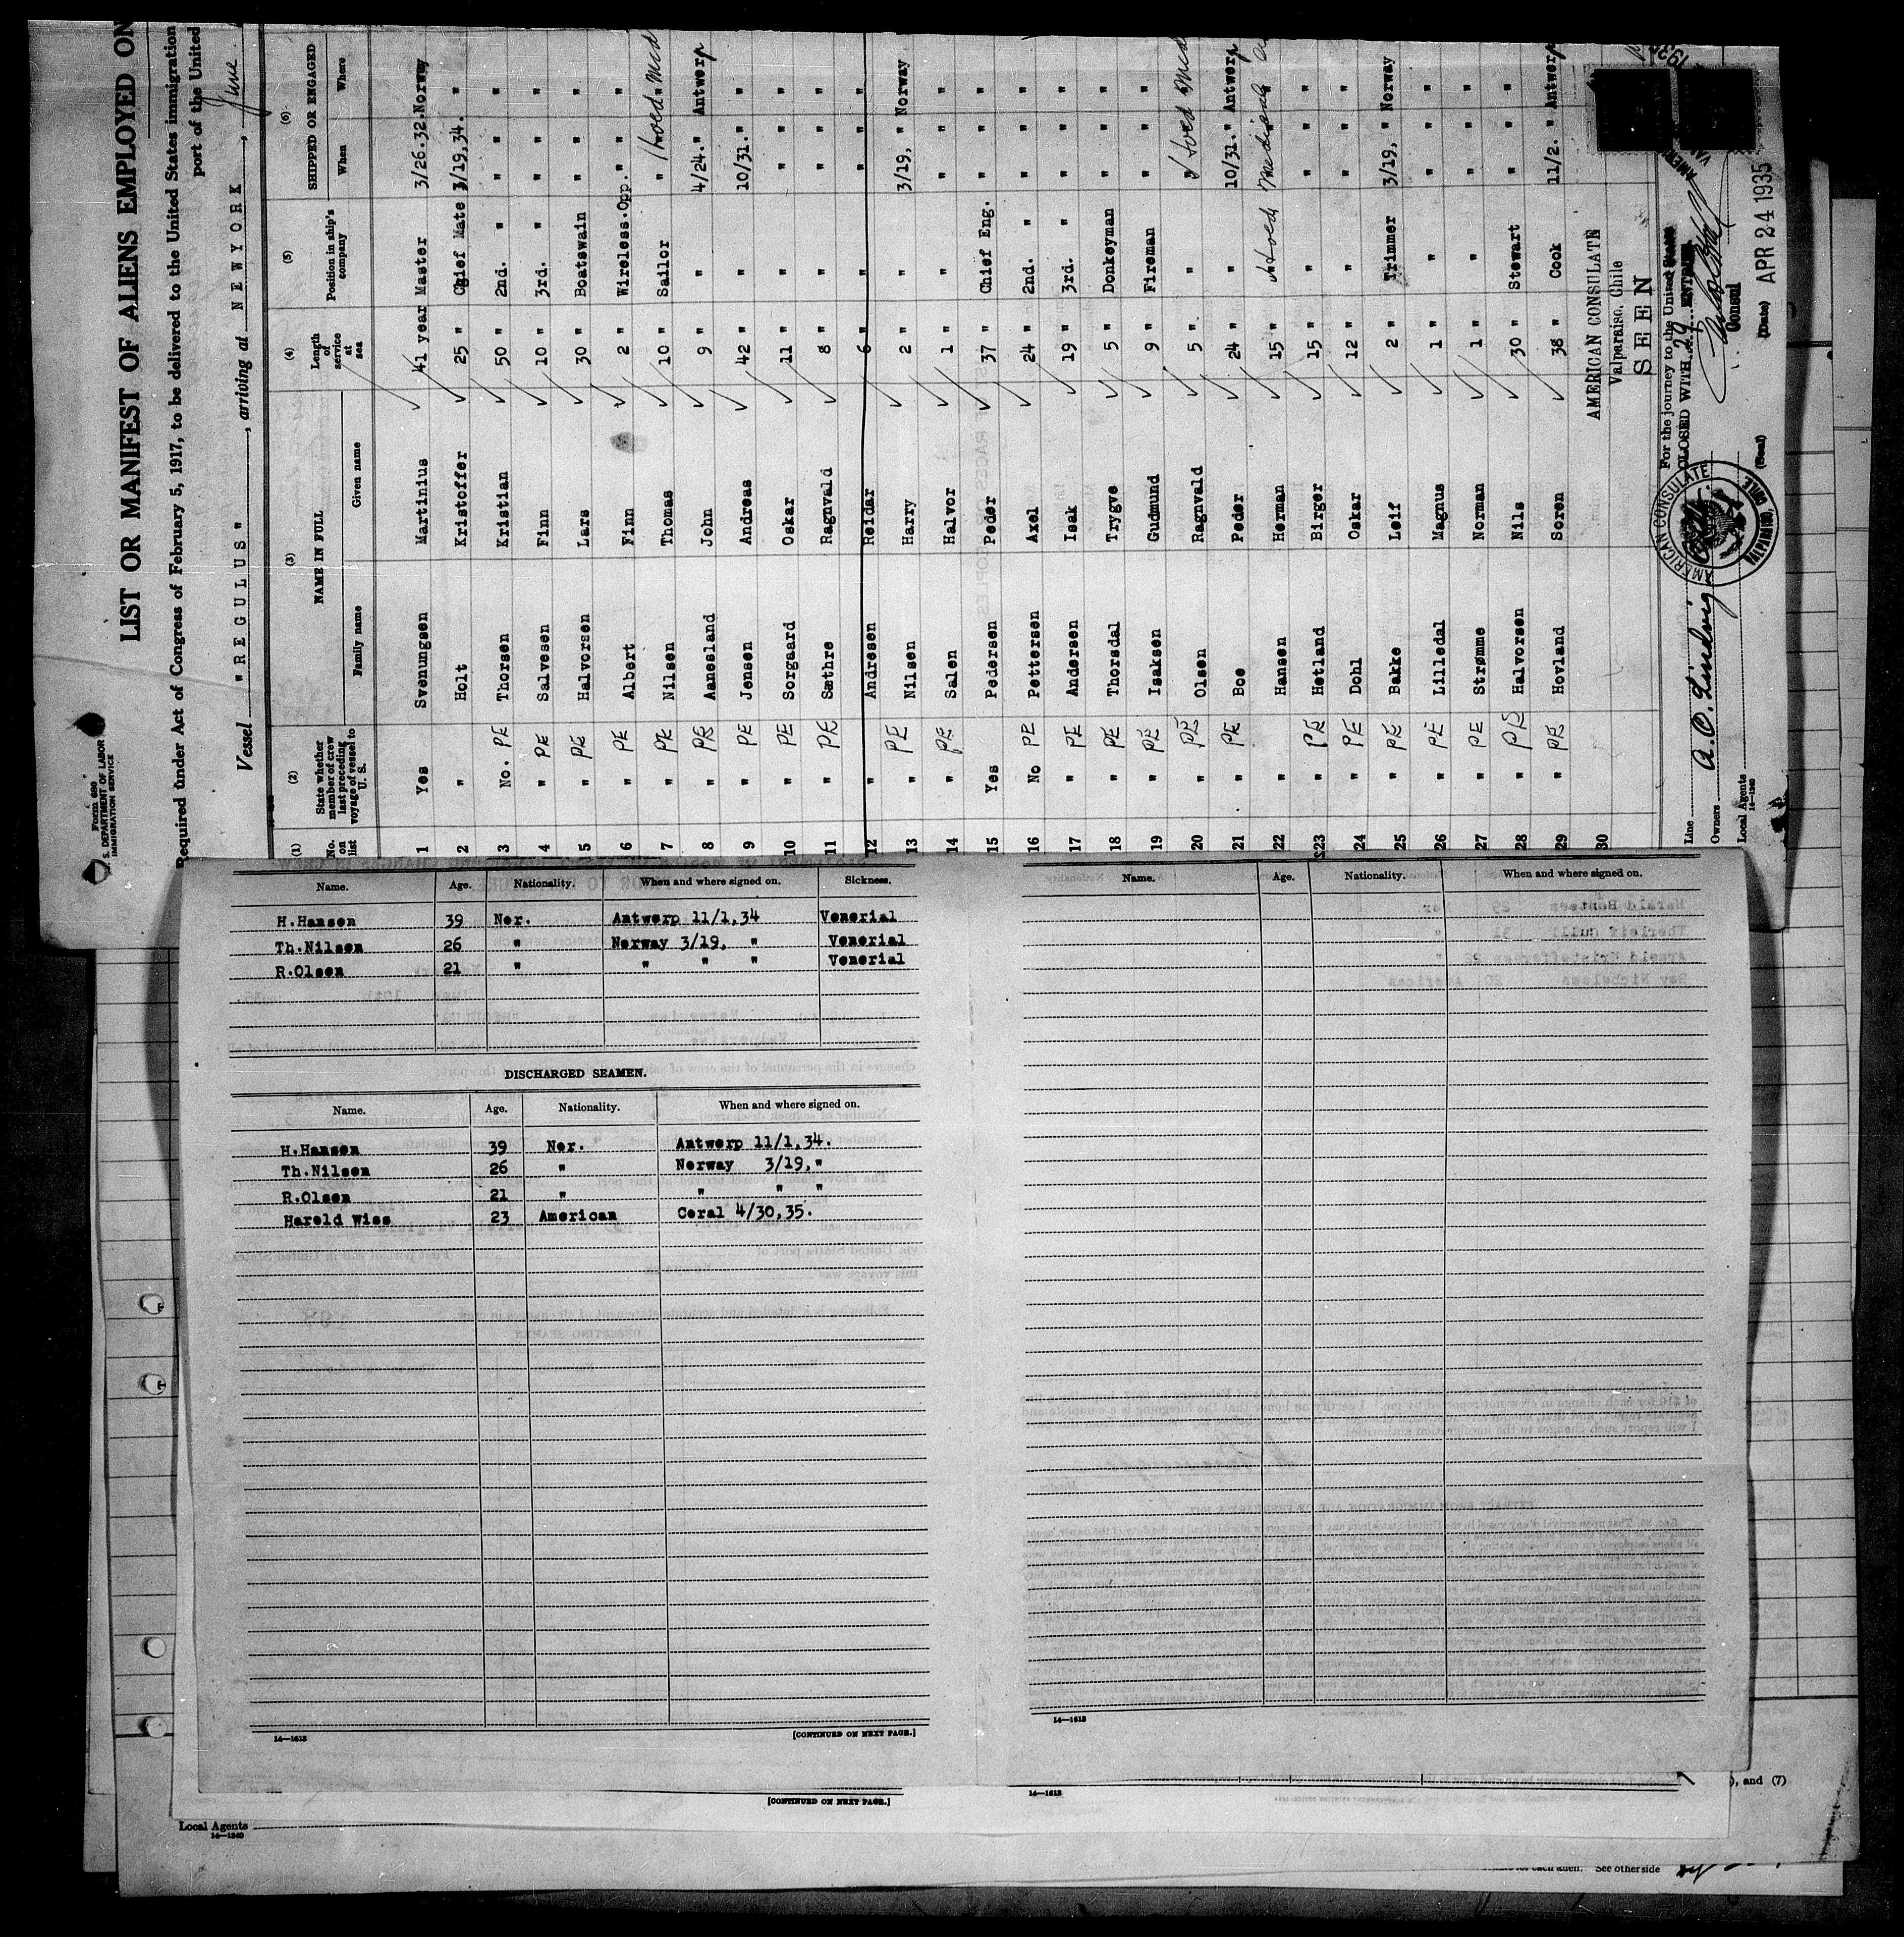 Form 689
U. S. DEPARTMENT OF LABOR
IMMIGRATION SERVICE
LIST OR MANIFEST OF ALIENS EMPLOYED ON
Required under Act of Congress of February 5, 1917, to be delivered to the United States immigration
port of the United
Vessel "REGULUS", arriving at NEWYORK, June
(1) (2) (3) (4) (5) (6)
No. on list State whether member of crew last preceding voyage of vessel to U. S. NAME IN FULL Family name Given name Length of service at sea Position in ship's company SHIPPED OR ENGAGED When Where
1 Yes Svenungsen Martinius 41 year Master 3/26.32. Norway
2 " Holt Kristoffer 25 " Chief Mate 3/19,34. "
3 No. PE Thorsen Kristian 50 " 2nd. " " " "
4 " PE Salvesen Finn 10 " 3rd. " " " "
5 " PE Halvorsen Lars 30 " Boatswain " " "
6 " PE Albert Finn 2 " Wireless.Opp. " " "
7 " PE Nilsen Thomas 10 " Sailor " "
8 " PE Aanesland John 9 " " 4/24. " Antwerp
9 " PE Jensen Andreas 42 " " 10/31. " "
10 " PE Sorgaard Oskar 11 " " " " "
11 " PE Sæthre Ragnvald 8 " " " " "
12 " Andresen Reidar 6 " " " " "
13 " PE Nilsen Harry 2 " " 3/19, " Norway
14 " PE Salen Halvor 1 " " " " "
15 Yes Pedersen Peder 37 " Chief Eng. " " "
16 No PE Pettersen Axel 24 " 2nd. " " " "
17 " PE Andersen Isak 19 " 3rd. " " " "
18 " PE Thorsdal Trygve 5 " Donkeyman " " "
19 " PE Isaksen Gudmund 9 " Fireman " " "
20 " PE Olsen Ragnvald 5 " " "
21 " PE Boe Peder 24 " " 10/31. " Antwerp
22 " Hansen Herman 15 "
23 " PE Hetland Birger 15 " " " " "
24 " PE Dohl Oskar 12 " " " " "
25 " PE Bakke Leif 2 " Trimmer 3/19, " Norway
26 " PE Lilledal Magnus 1 " " " " "
27 " PE Strømme Norman 1 " " " " "
28 " PE Halvorsen Nils 30 " Stewart " " "
29 " PE Hovland Soren 38 " Cook 11/2. " Antwerp
30
AMERICAN CONSULATE
Valparaiso, Chile
SEEN
For the journey to the United States
CLOSED WITH 29 ENTRIES
Consul
(Seal) (Date) APR 24 1935
AMERICAN CONSULATE
VALPARAISO, CHILE
Line
Owners A. O. Lindvig
Local Agents
14—1240
Name. Age. Nationality. When and where signed on. Sickness.
H.Hansen 39 Nor. Antwerp 11/1,34 Venerial
Th.Nilsen 26 " Norway 3/19, " Venerial
R.Olsen 21 " " " " Venerial
DISCHARGED SEAMEN.
Name. Age. Nationality. When and where signed on.
H.Hansen 39 Nor. Antwerp 11/1,34.
Th.Nilsen 26 " Norway 3/19,"
R.Olsen 21 " " " "
Harold Wiss 23 American Coral 4/30,35.
14—1613 [CONTINUED ON NEXT PAGE.]
Name. Age. Nationality. When and where signed on.
14—1613
[CONTINUED ON NEXT PAGE.]
14—1613
), and (7)
Local Agents
14—1240
for each alien. See other side